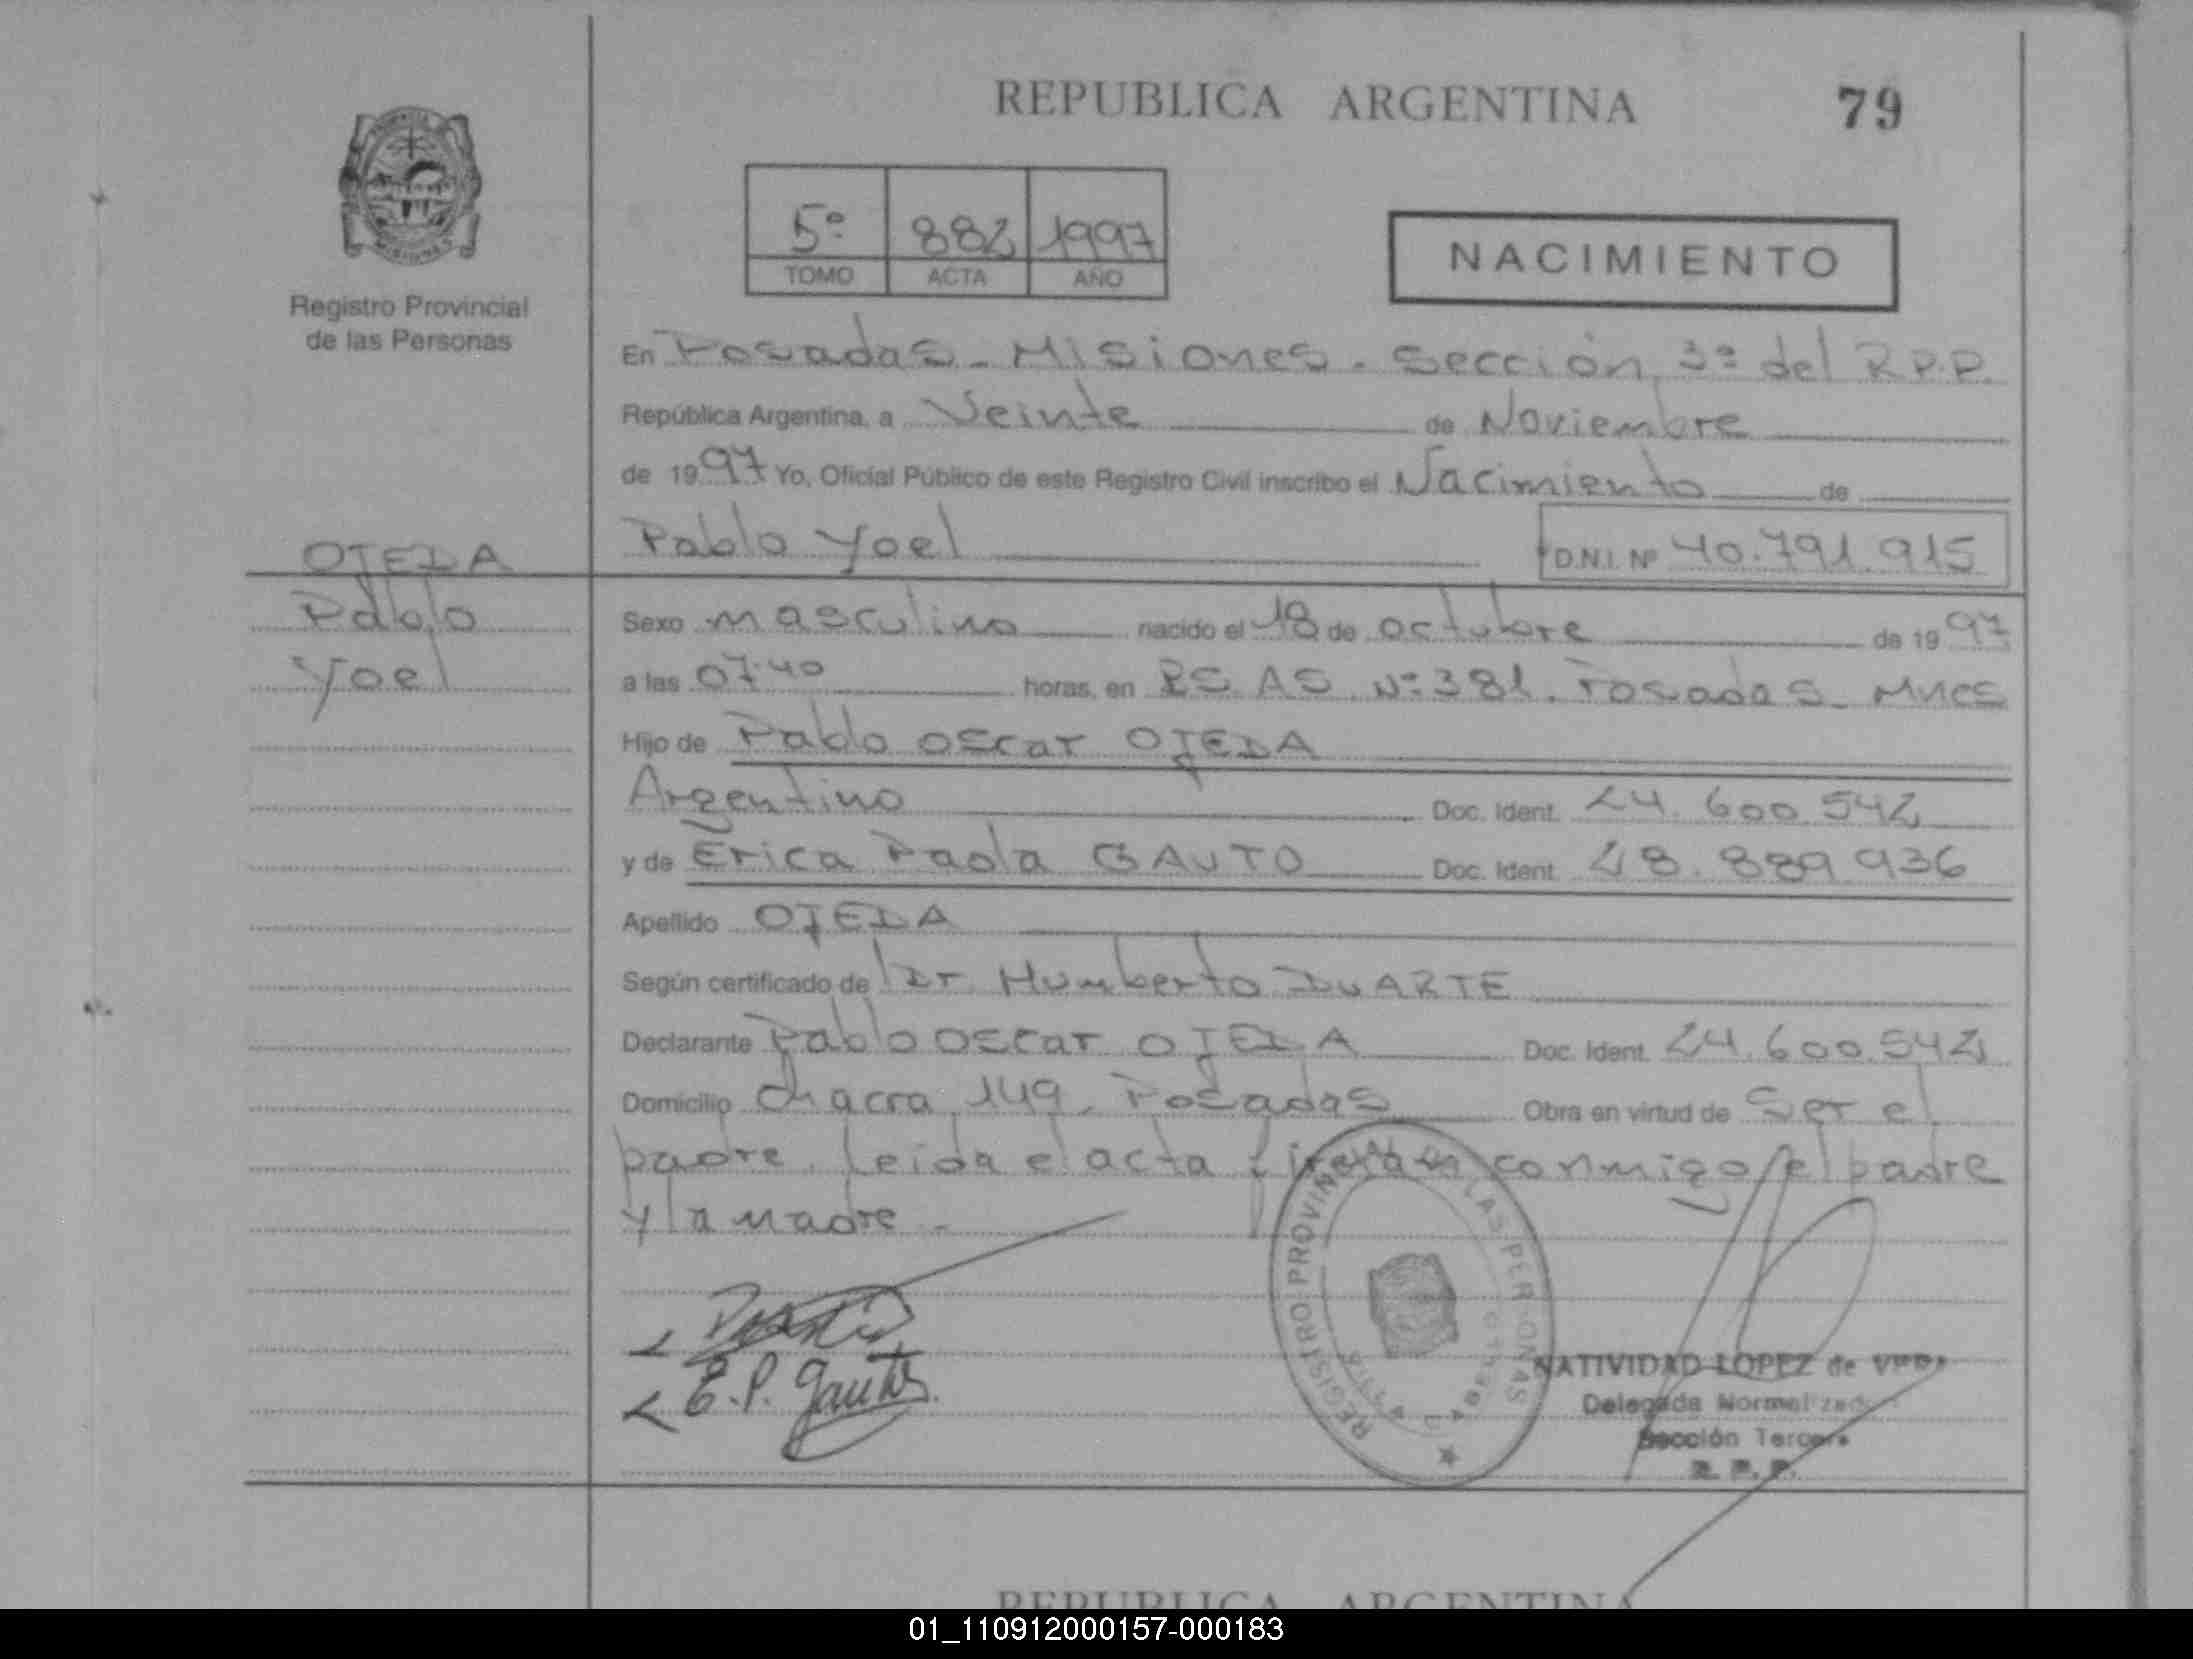 REPUBLICA ARGENTINA
79
5º 882 1997
TOMO ACTA AÑO
NACIMIENTO
MISIONES
Registro Provincial
de las Personas
En Posadas - Misiones. Sección 3ª del R.P.P.
República Argentina, a Veinte de Noviembre
de 1997 Yo, Oficial Público de este Registro Civil inscribo el Nacimiento de
Pablo Yoel D.N.I. Nº 40.791.915
OJEDA
Pablo
Yoel
Sexo masculino nacido el 18 de octubre de 1997
a las 07:40 horas, en PS AS Nº 381. Posadas - Mnes
Hijo de Pablo Oscar OJEDA
Argentino Doc. Ident. 24.600.542
y de Erica Paola GAUTO Doc. Ident. 28.889.936
Apellido OJEDA
Según certificado de Dr. Humberto DUARTE
Declarante Pablo Oscar OJEDA Doc. Ident. 24.600.542
Domicilio Chacra 149. Posadas Obra en virtud de Ser el
padre. Leida el acta firman conmigo el padre
y la madre -
REGISTRO PROVINCIAL DE LAS PERSONAS
E.P. Gauto
NATIVIDAD LOPEZ de
Delegada Normalizad
Sección Tercera
R. P. P.
REPUBLICA ARGENTINA
01_110912000157-000183